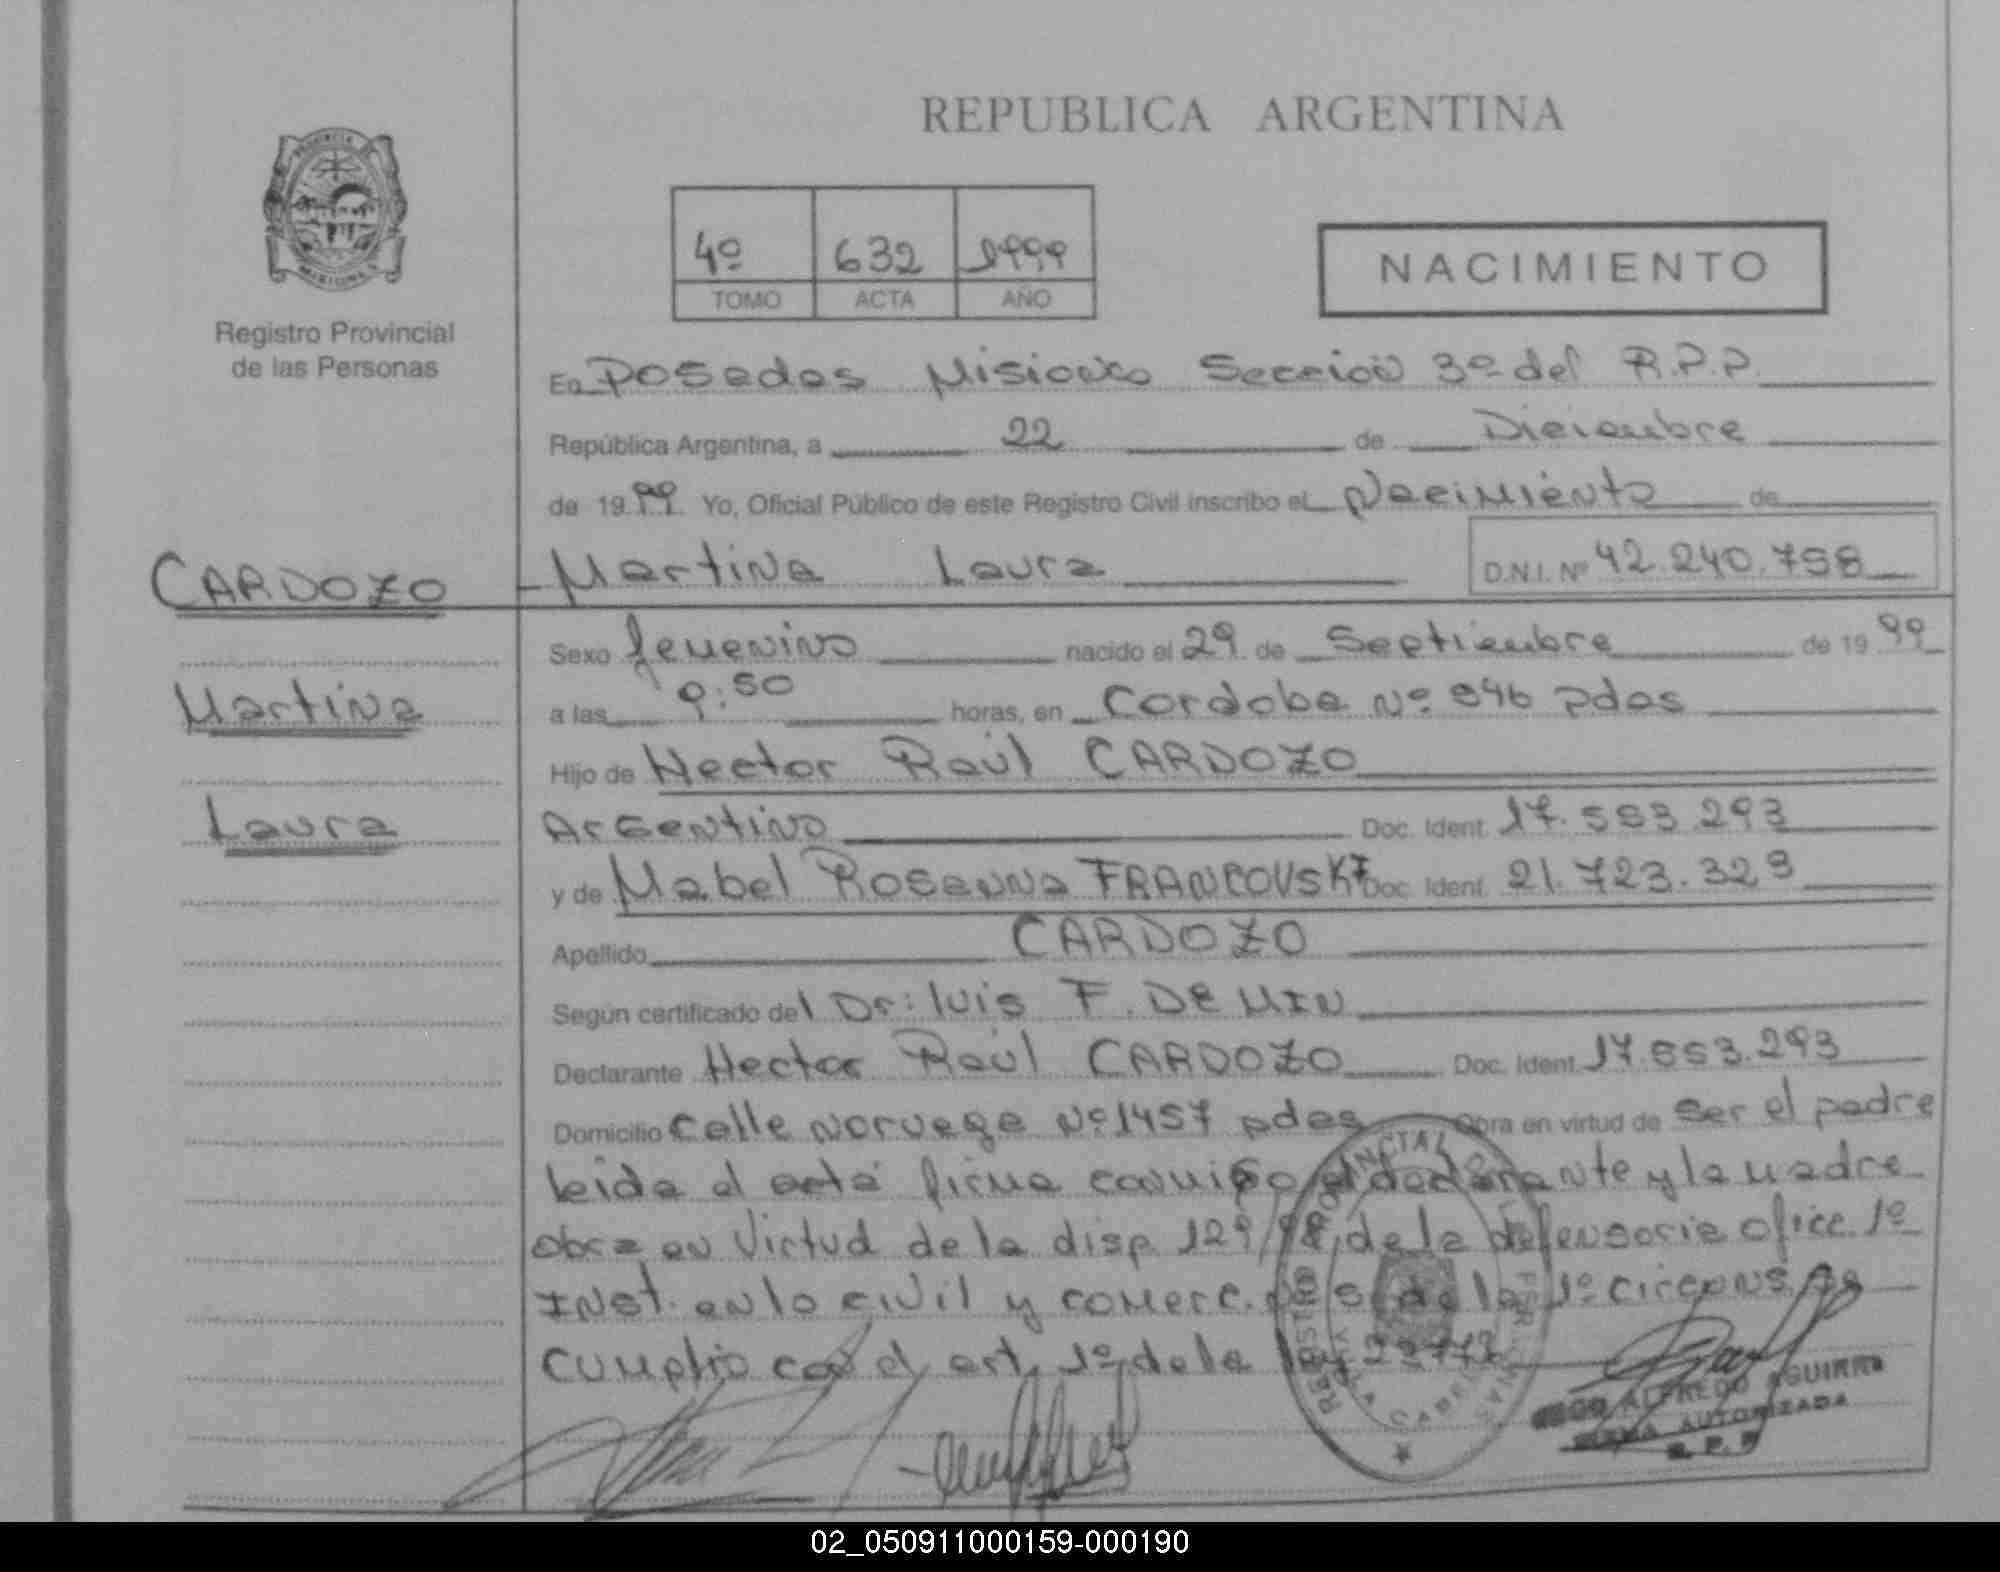 REPUBLICA ARGENTINA
PROVINCIA
MISIONES
Registro Provincial
de las Personas
4º 632 1999
TOMO ACTA AÑO
NACIMIENTO
En Posadas Misiones Sección 3º del R.P.P.
República Argentina, a 22 de Diciembre
de 1999. Yo, Oficial Público de este Registro Civil inscribo el Nacimiento de
CARDOZO
Martina Laura D.N.I. Nº 42.240.758
Martina
Laura
Sexo femenino nacido el 29 de Septiembre de 1999
a las 9:50 horas, en Cordoba Nº 946 pdas
Hijo de Hector Raúl CARDOZO
Argentino Doc. Ident. 17.553.293
y de Mabel Rosanna FRANCOVSKI Doc. Ident. 21.723.329
Apellido CARDOZO
Según certificado del Dr: luis F. DE MIN
Declarante Hector Raúl CARDOZO Doc. Ident. 17.553.293
Domicilio Calle Noruega Nº 1457 pdas Obra en virtud de ser el padre
leida el acta firma conmigo el declarante y la madre
obra en virtud de la disp. 129/98, de la defensoria ofice. 1º
INst. en lo civil y comerc. de la 1º circuns.
cumplio con el art. 1º de la ley
ALFREDO AGUIRRE
FIRMA AUTORIZADA
R. P. P.
02_050911000159-000190